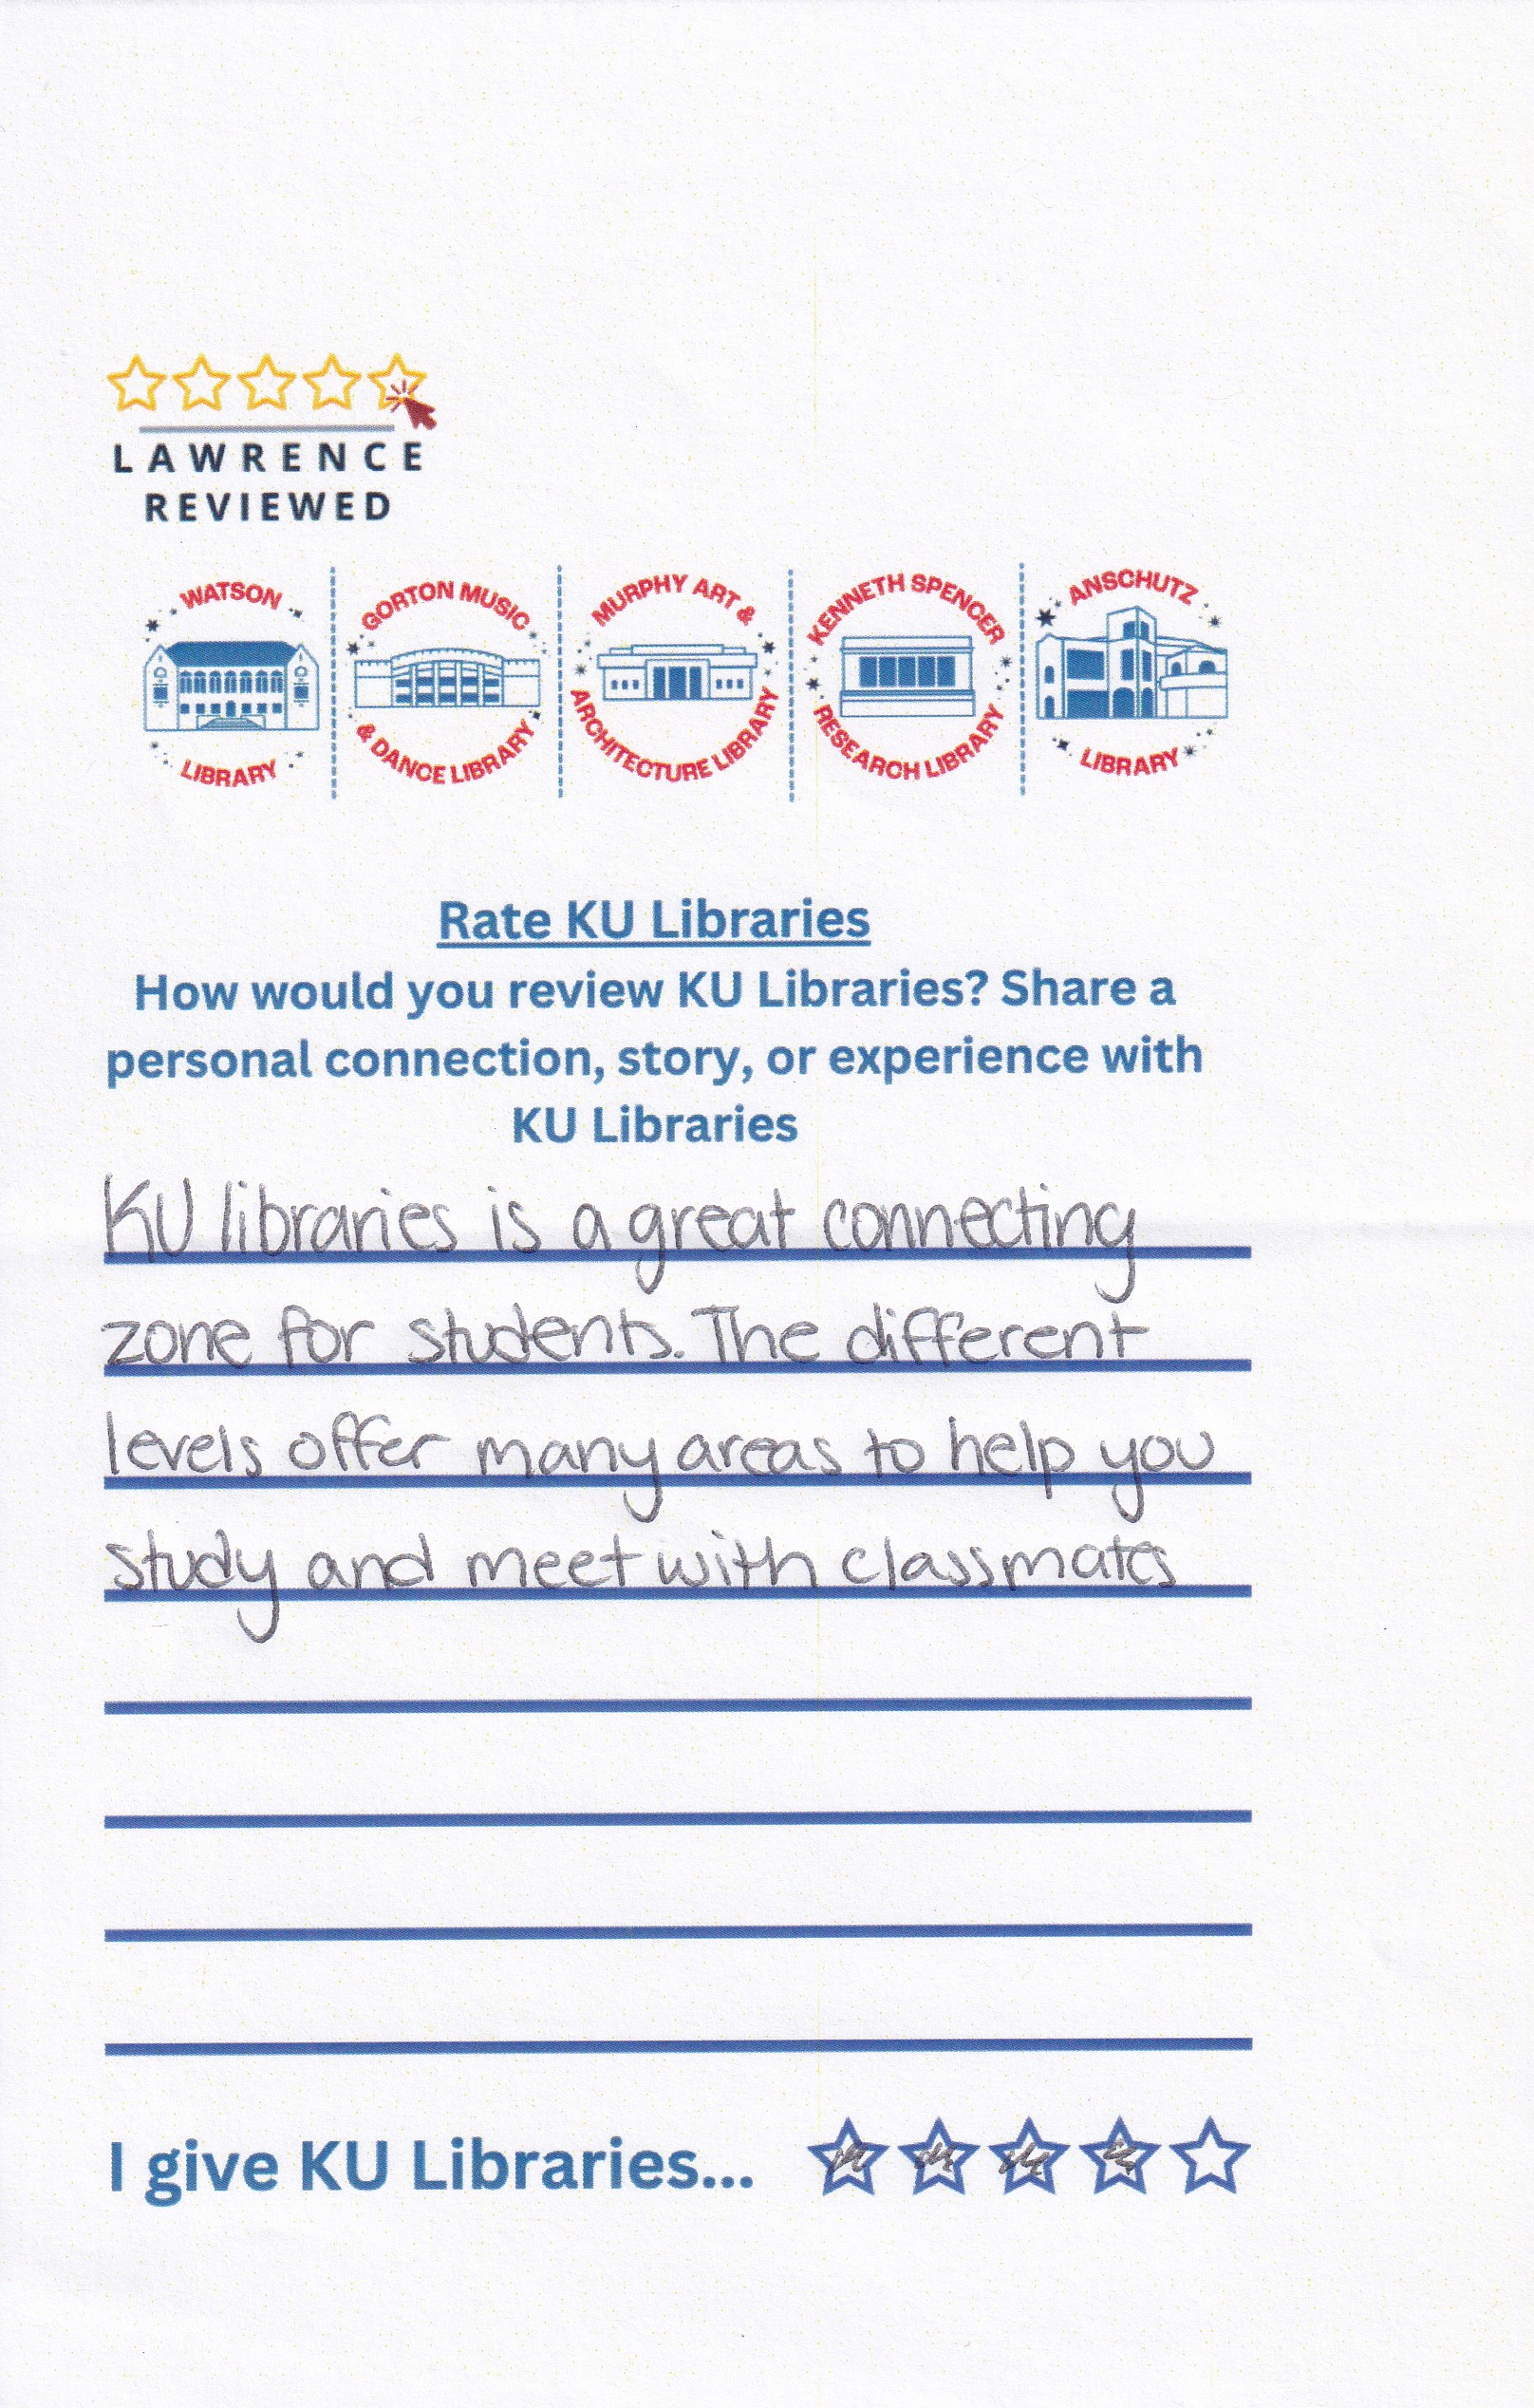 LAWRENCE
REVIEWED
WATSON
LIBRARY
GORTON MUSIC
& DANCE LIBRARY
MURPHY ART &
ARCHITECTURE LIBRARY
KENNETH SPENCER
RESEARCH LIBRARY
ANSCHUTZ
LIBRARY
Rate KU Libraries
How would you review KU Libraries? Share a
personal connection, story, or experience with
KU Libraries
KU libraries is a great connecting
zone for students. The different
levels offer many areas to help you
study and meet with classmates
I give KU Libraries...